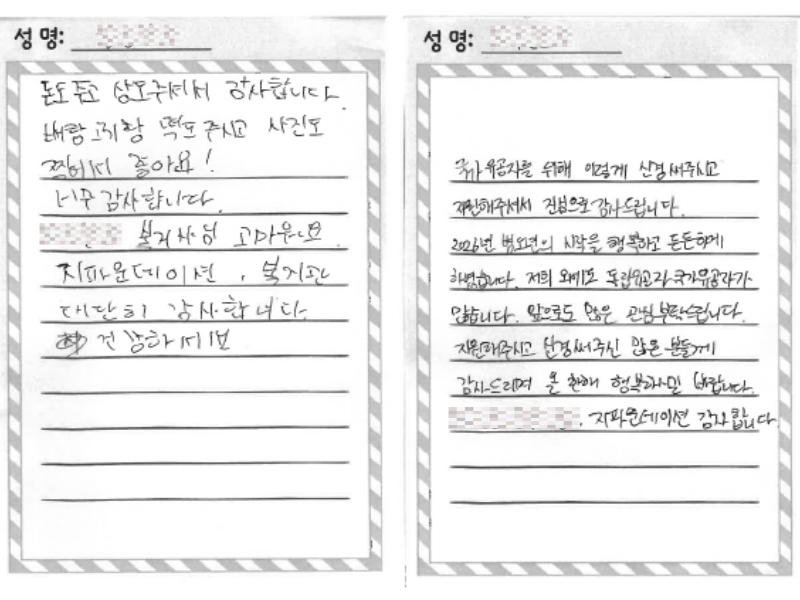 성 명:
돈도 주고 상도 주셔서 감사합니다.
떡도 주시고 사진도
찍어서 좋아요!
너무 감사합니다.
복지사님 고마워요.
지파운데이션, 복지관
대단히 감사합니다.
건강하세요
성 명:
국가유공자를 위해 이렇게 신경써주시고
지원해주셔서 진심으로 감사드립니다.
2026년 병오년의 시작을 행복하고 든든하게
하였습니다. 저희 외에도 독립유공자 국가유공자가
많습니다. 앞으로도 많은 관심 부탁드립니다.
지원해주시고 신경써주신 많은 분들께
감사드리며 올 한해 행복하시길 바랍니다.
지파운데이션 감사합니다